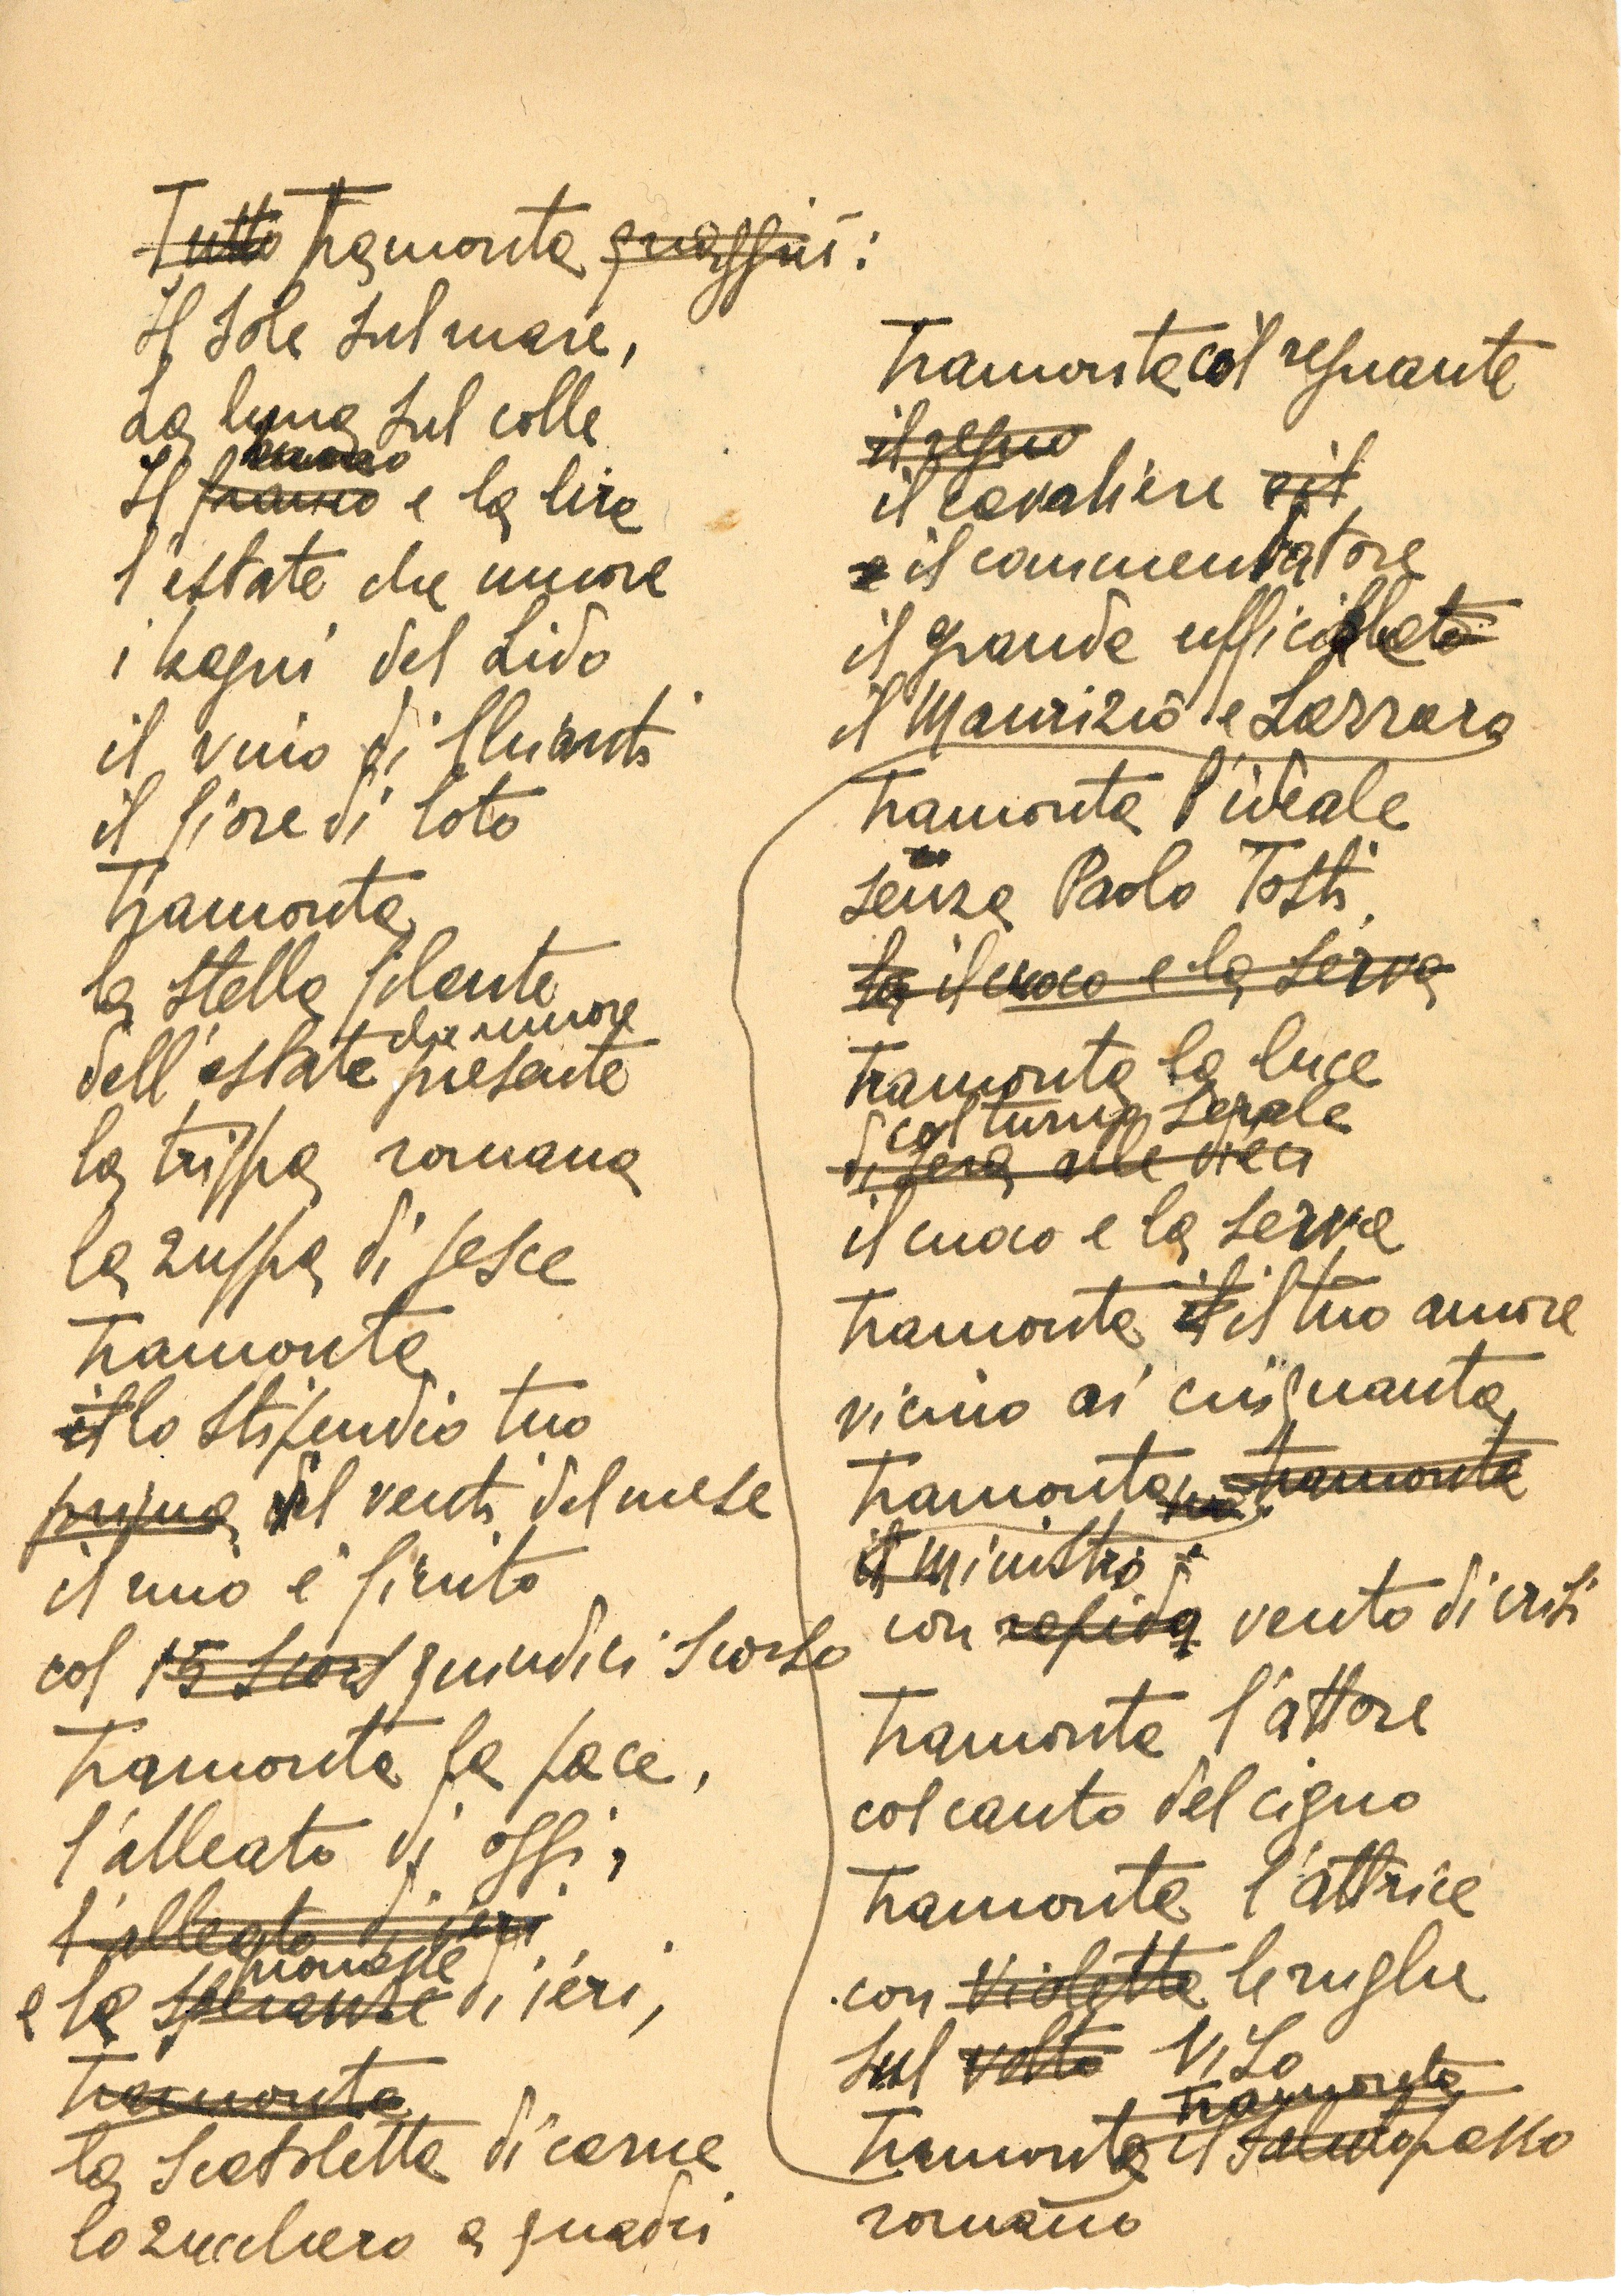 Tutto Tramonta quaggiù:
Il sole sul mare,
La luna sul colle
Il franco e la lira
l'estate che muore
i bagni del Lido
il vino di Chianti
il fiore di loto
Tramonta
la stella filante
che muore
dell'estate presente
la trippa romana
la zuppa di pesce
Tramonta
il lo stipendio tuo
prima del venti del mese
il mio è finito
col 15 scors quindici scorso
Tramonta la pace,
l'alleato di oggi,
l'alleato di ieri
e la di ieri,
Tramonta
la scatoletta di carne
lo zucchero a quadri
Tramonta col regnante
il regno
il cavaliere e il
e il commendatore
il grande
il Maurizio e Lazzaro
Tramonta l'ideale
senza Paolo Tosti,
la il cuoco e la serva
Tramonta la luce
col turno serale
di sera alle dieci
il cuoco e la serva
Tramonta il il tuo amore
vicino ai cinquanta
Tramonta tramonta
il ministro
con rapida vento di crisi
Tramonta l'attore
col canto del cigno
Tramonta l'attrice
con violetta le rughe
sul volto viso
tramonta
Tramonta il saluto passo
romano